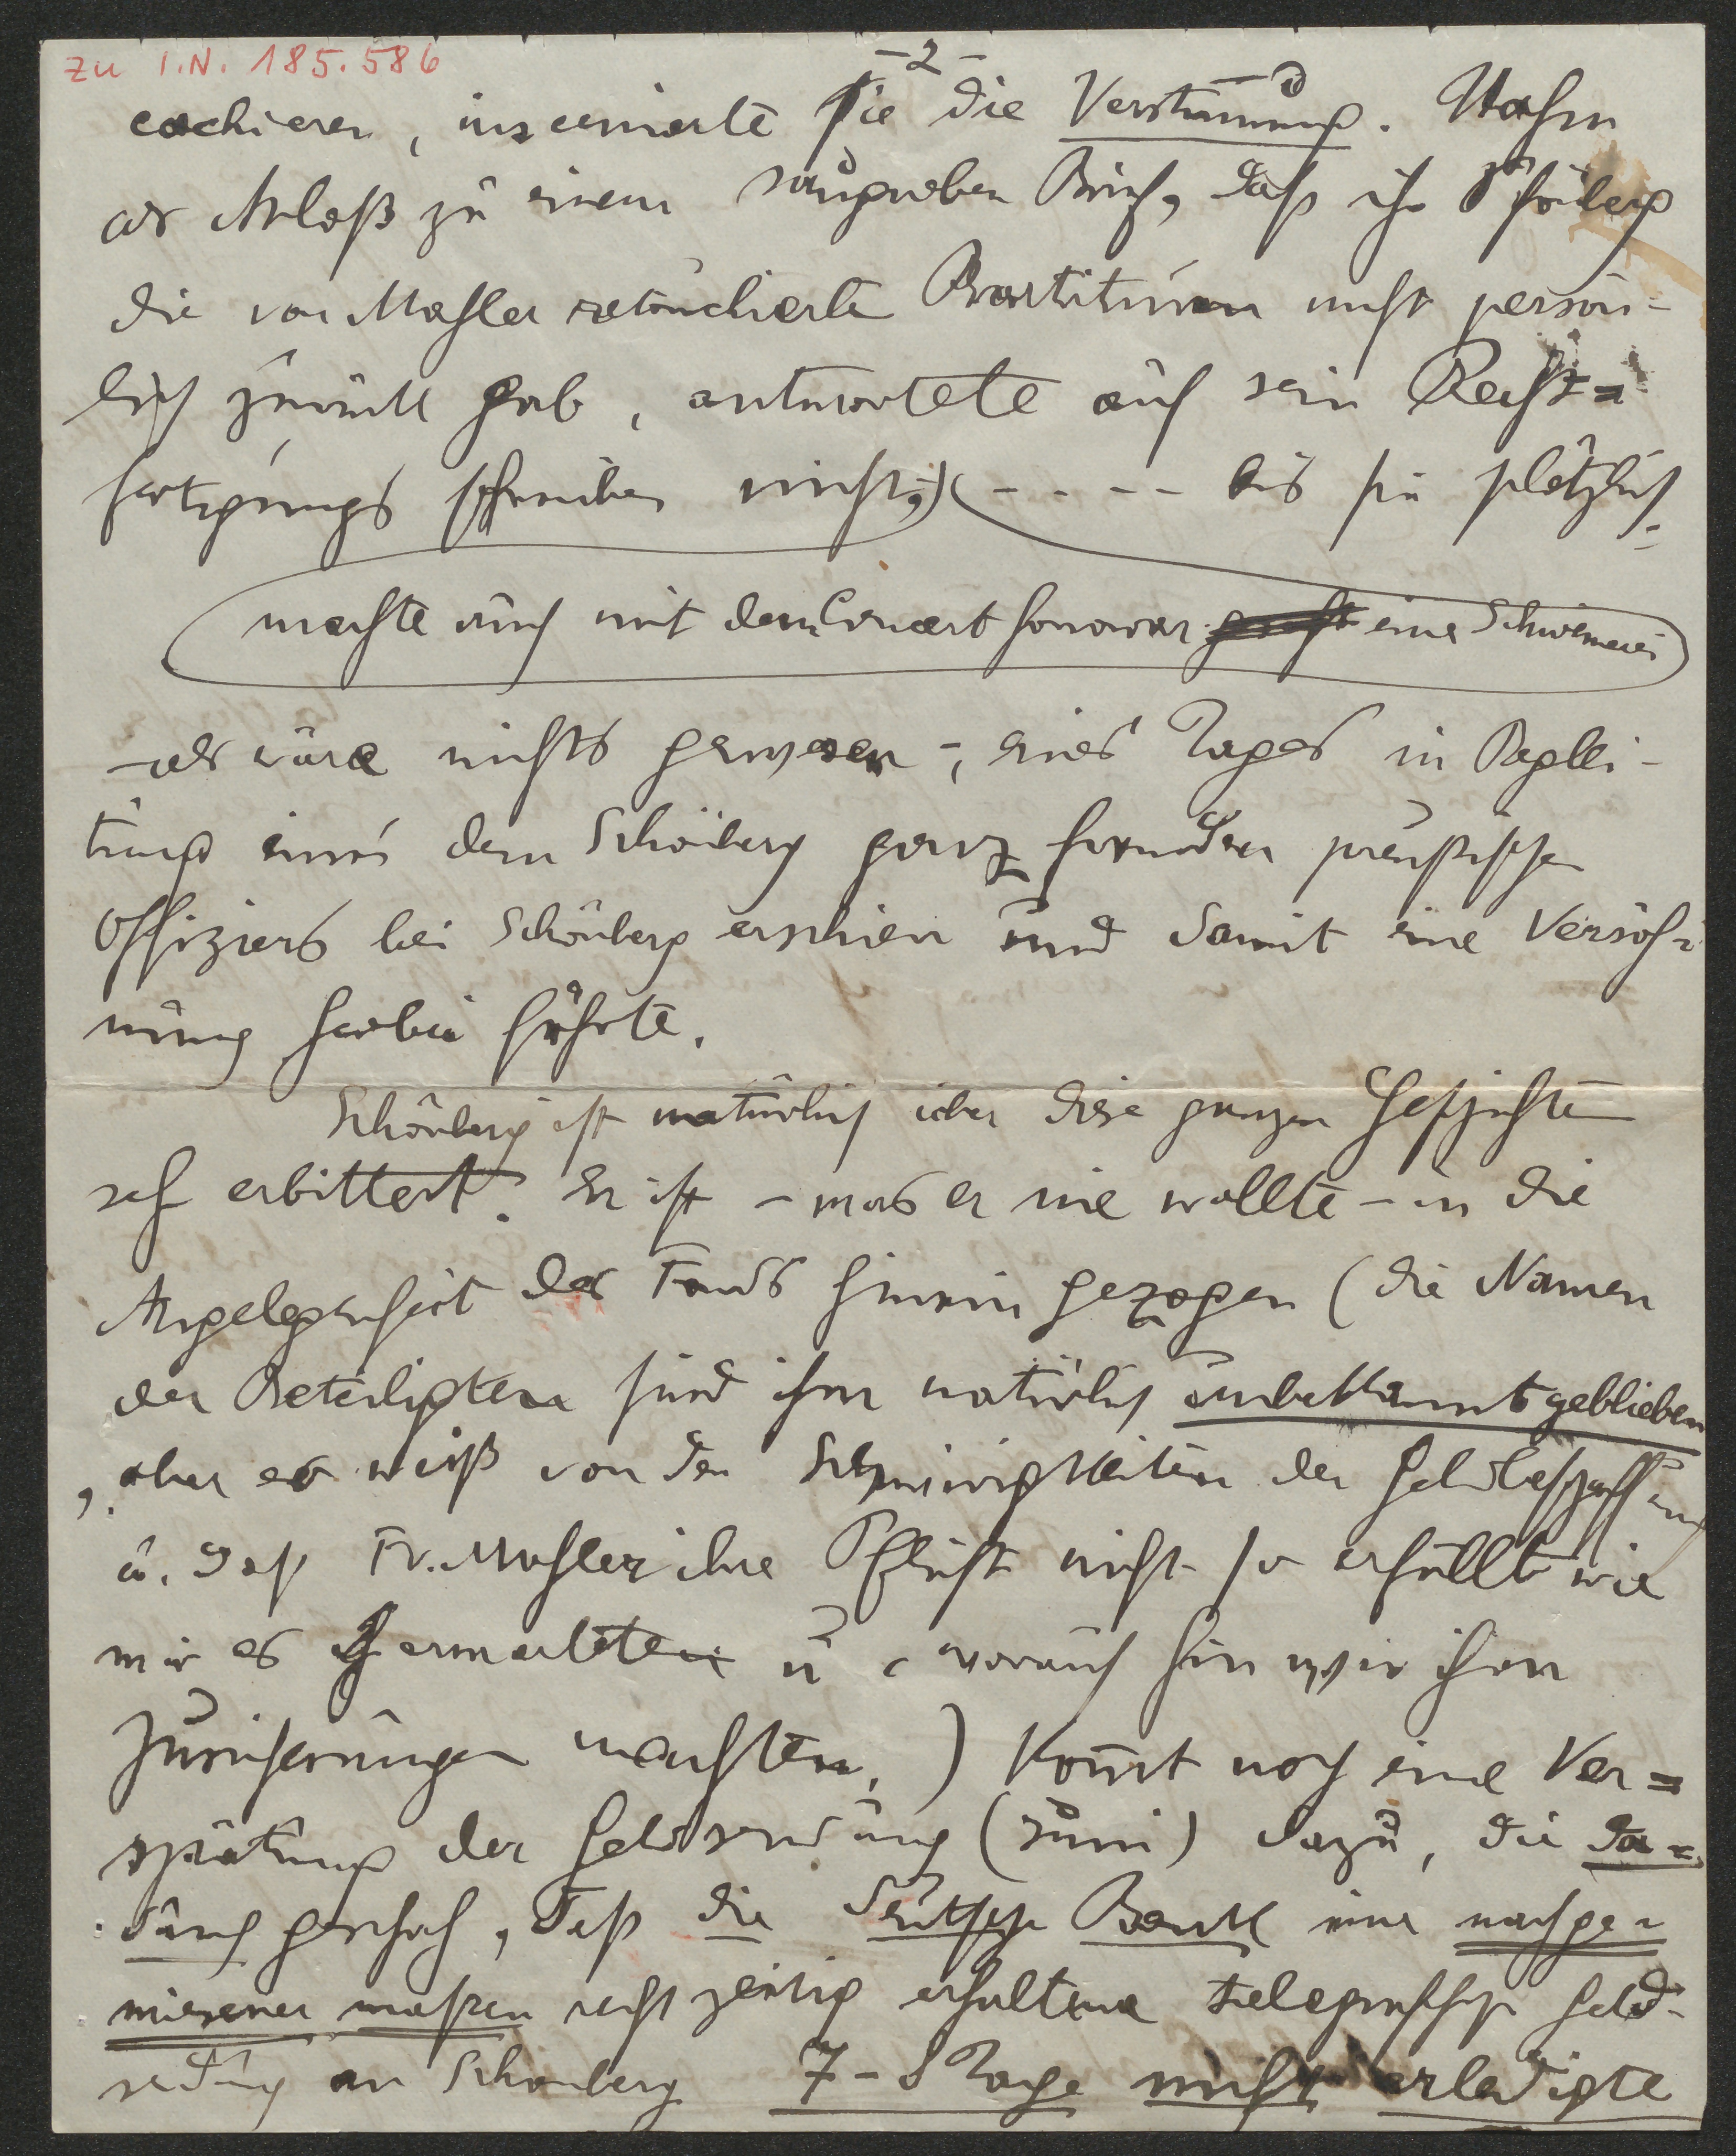 zu I.N. 185.586
-2-
cachieren, inscenierte sie die Verstimmung. Nahm
als Anlaß zu einem saugroben Brief, daß ihr Schönberg
die von Mahler retouchierte Partituren nicht persön-
lich zurück gab, antwortete auf sein Recht=
fertigungs schreiben nicht, ) ( - - - - bis sie plötzlich -
machte auch mit dem Concert honorar eine Schweinerei
- als wäre nichts gewesen -, eines Tages in Beglei-
tung eines dem Schönberg ganz fremden preußischen
Offiziers bei Schönberg erschien und damit eine Versöh=
nung herbei führte.
Schönberg ist natürlich über diese ganzen Geschichten
sehr erbittert. Er ist - was er nie wollte - in die
Angelegenheit des Fonds hinein gezogen (die Namen
der Beteiligten sind ihm natürlich unbekannt geblieben
, aber er weiß von den Schwierigkeiten der Geldbeschaffung
u. daß Fr. Mahler ihre Pflicht nicht so erfüllt wie
wir es erwarteten u, worauf hin wir ihm
Zusicherungen machten.) Kom̅t noch eine Ver=
spätung der Geldsendung (Juni) dazu, die da=
durch geschah, daß die Deutsche Bank eine nachge=
wiesener maßen recht zeitig erhaltene telegraphische Geld-
sendung an Schönberg 7-8 Tage nicht erledigte